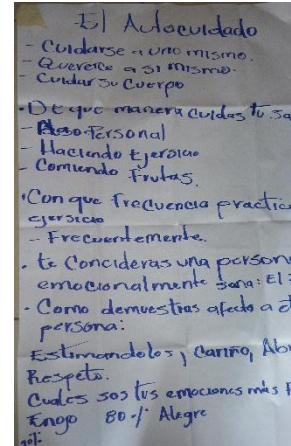 El Autocuidado
- Cuidarse a uno mismo.
- Quererce a si mismo.
- Cuidar su Cuerpo
• De que manera cuidas tu sa
- Aseo Personal
- Haciendo Ejersicio
- Comiendo Frutas.
• Con que frecuencia practic
ejersicio
- Frecuentemente.
• te Concideras una person
emocionalmente sana: El
• Como demuestras afecto a
persona:
Estimandolos, Cariño, Ab
Respeto.
Cuales sos tus emociones más F
Enojo 80% Alegre